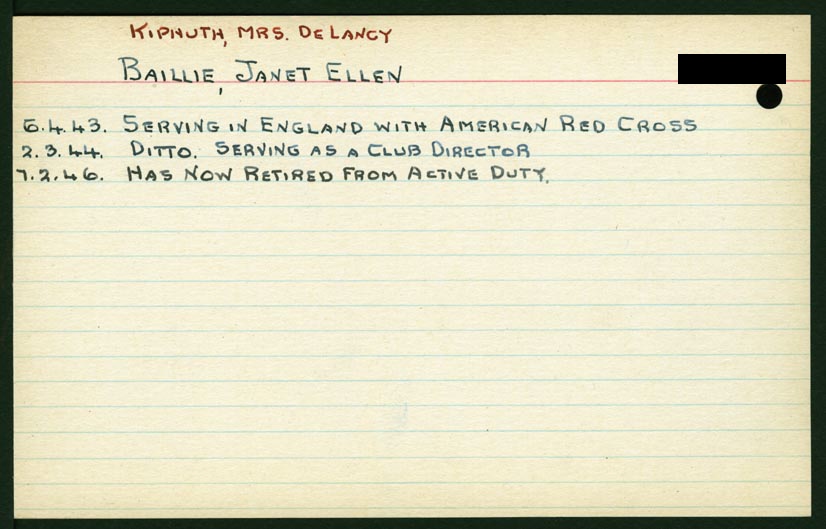 KIPHUTH, MRS. DELANCY
BAILLIE, JANET ELLEN
6.4.43. SERVING IN ENGLAND WITH AMERICAN RED CROSS
2.3.44. DITTO. SERVING AS A CLUB DIRECTOR
7.2.46. HAS NOW RETIRED FROM ACTIVE DUTY.